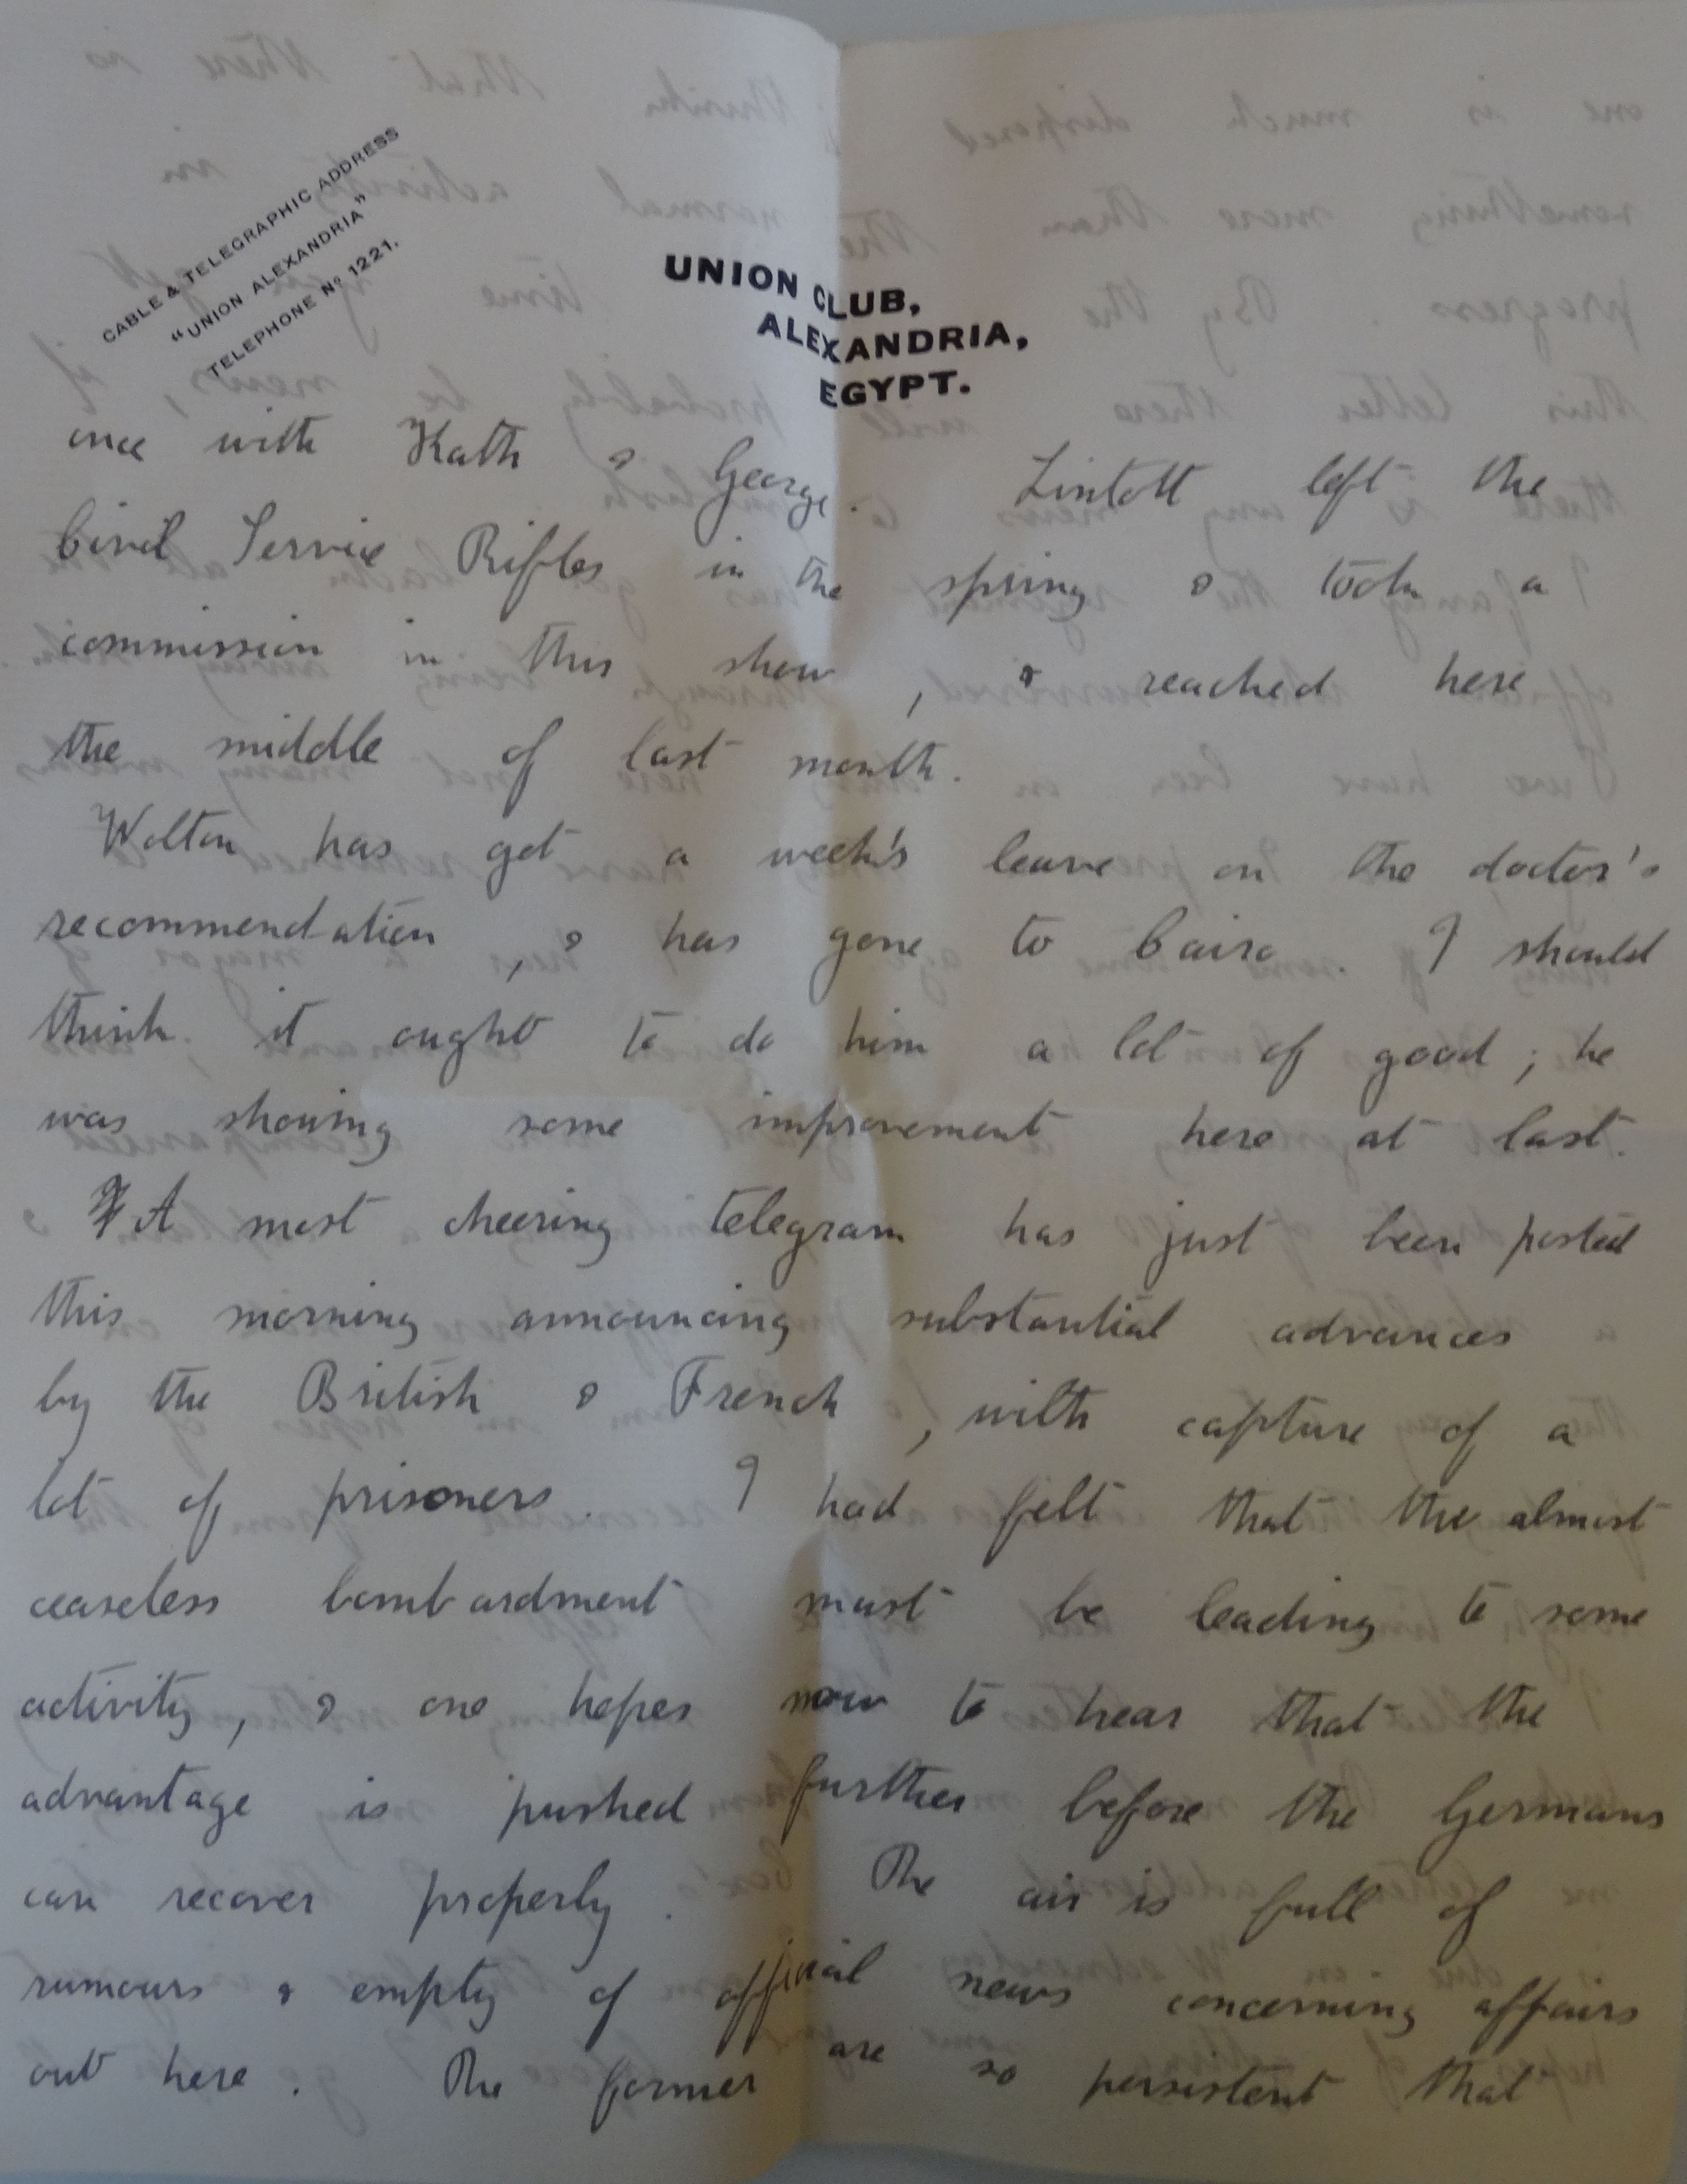 CABLE & TELEGRAPHIC ADDRESS
"UNION ALEXANDRIA"
TELEPHONE Nº 1221.
UNION CLUB,
ALEXANDRIA,
EGYPT.
once with Kath & George. Lintott left the
Civil Service Rifles in the spring & took a
commission in this show, & reached here
the middle of last month.
Wolton has got a week's leave on the doctor's
recommendation, & has gone to Cairo. I should
think it ought to do him a lot of good; he
was showing some improvement here at last.
A most cheering telegram has just been posted
this morning announcing substantial advances
by the British & French, with capture of a
lot of prisoners. I had felt that the almost
ceaseless bombardment must be leading to some
activity, & one hopes now to hear that the
advantage is pushed further before the Germans
can recover properly. The air is full of
rumours & empty of official news concerning affairs
out here. The former are so persistent that